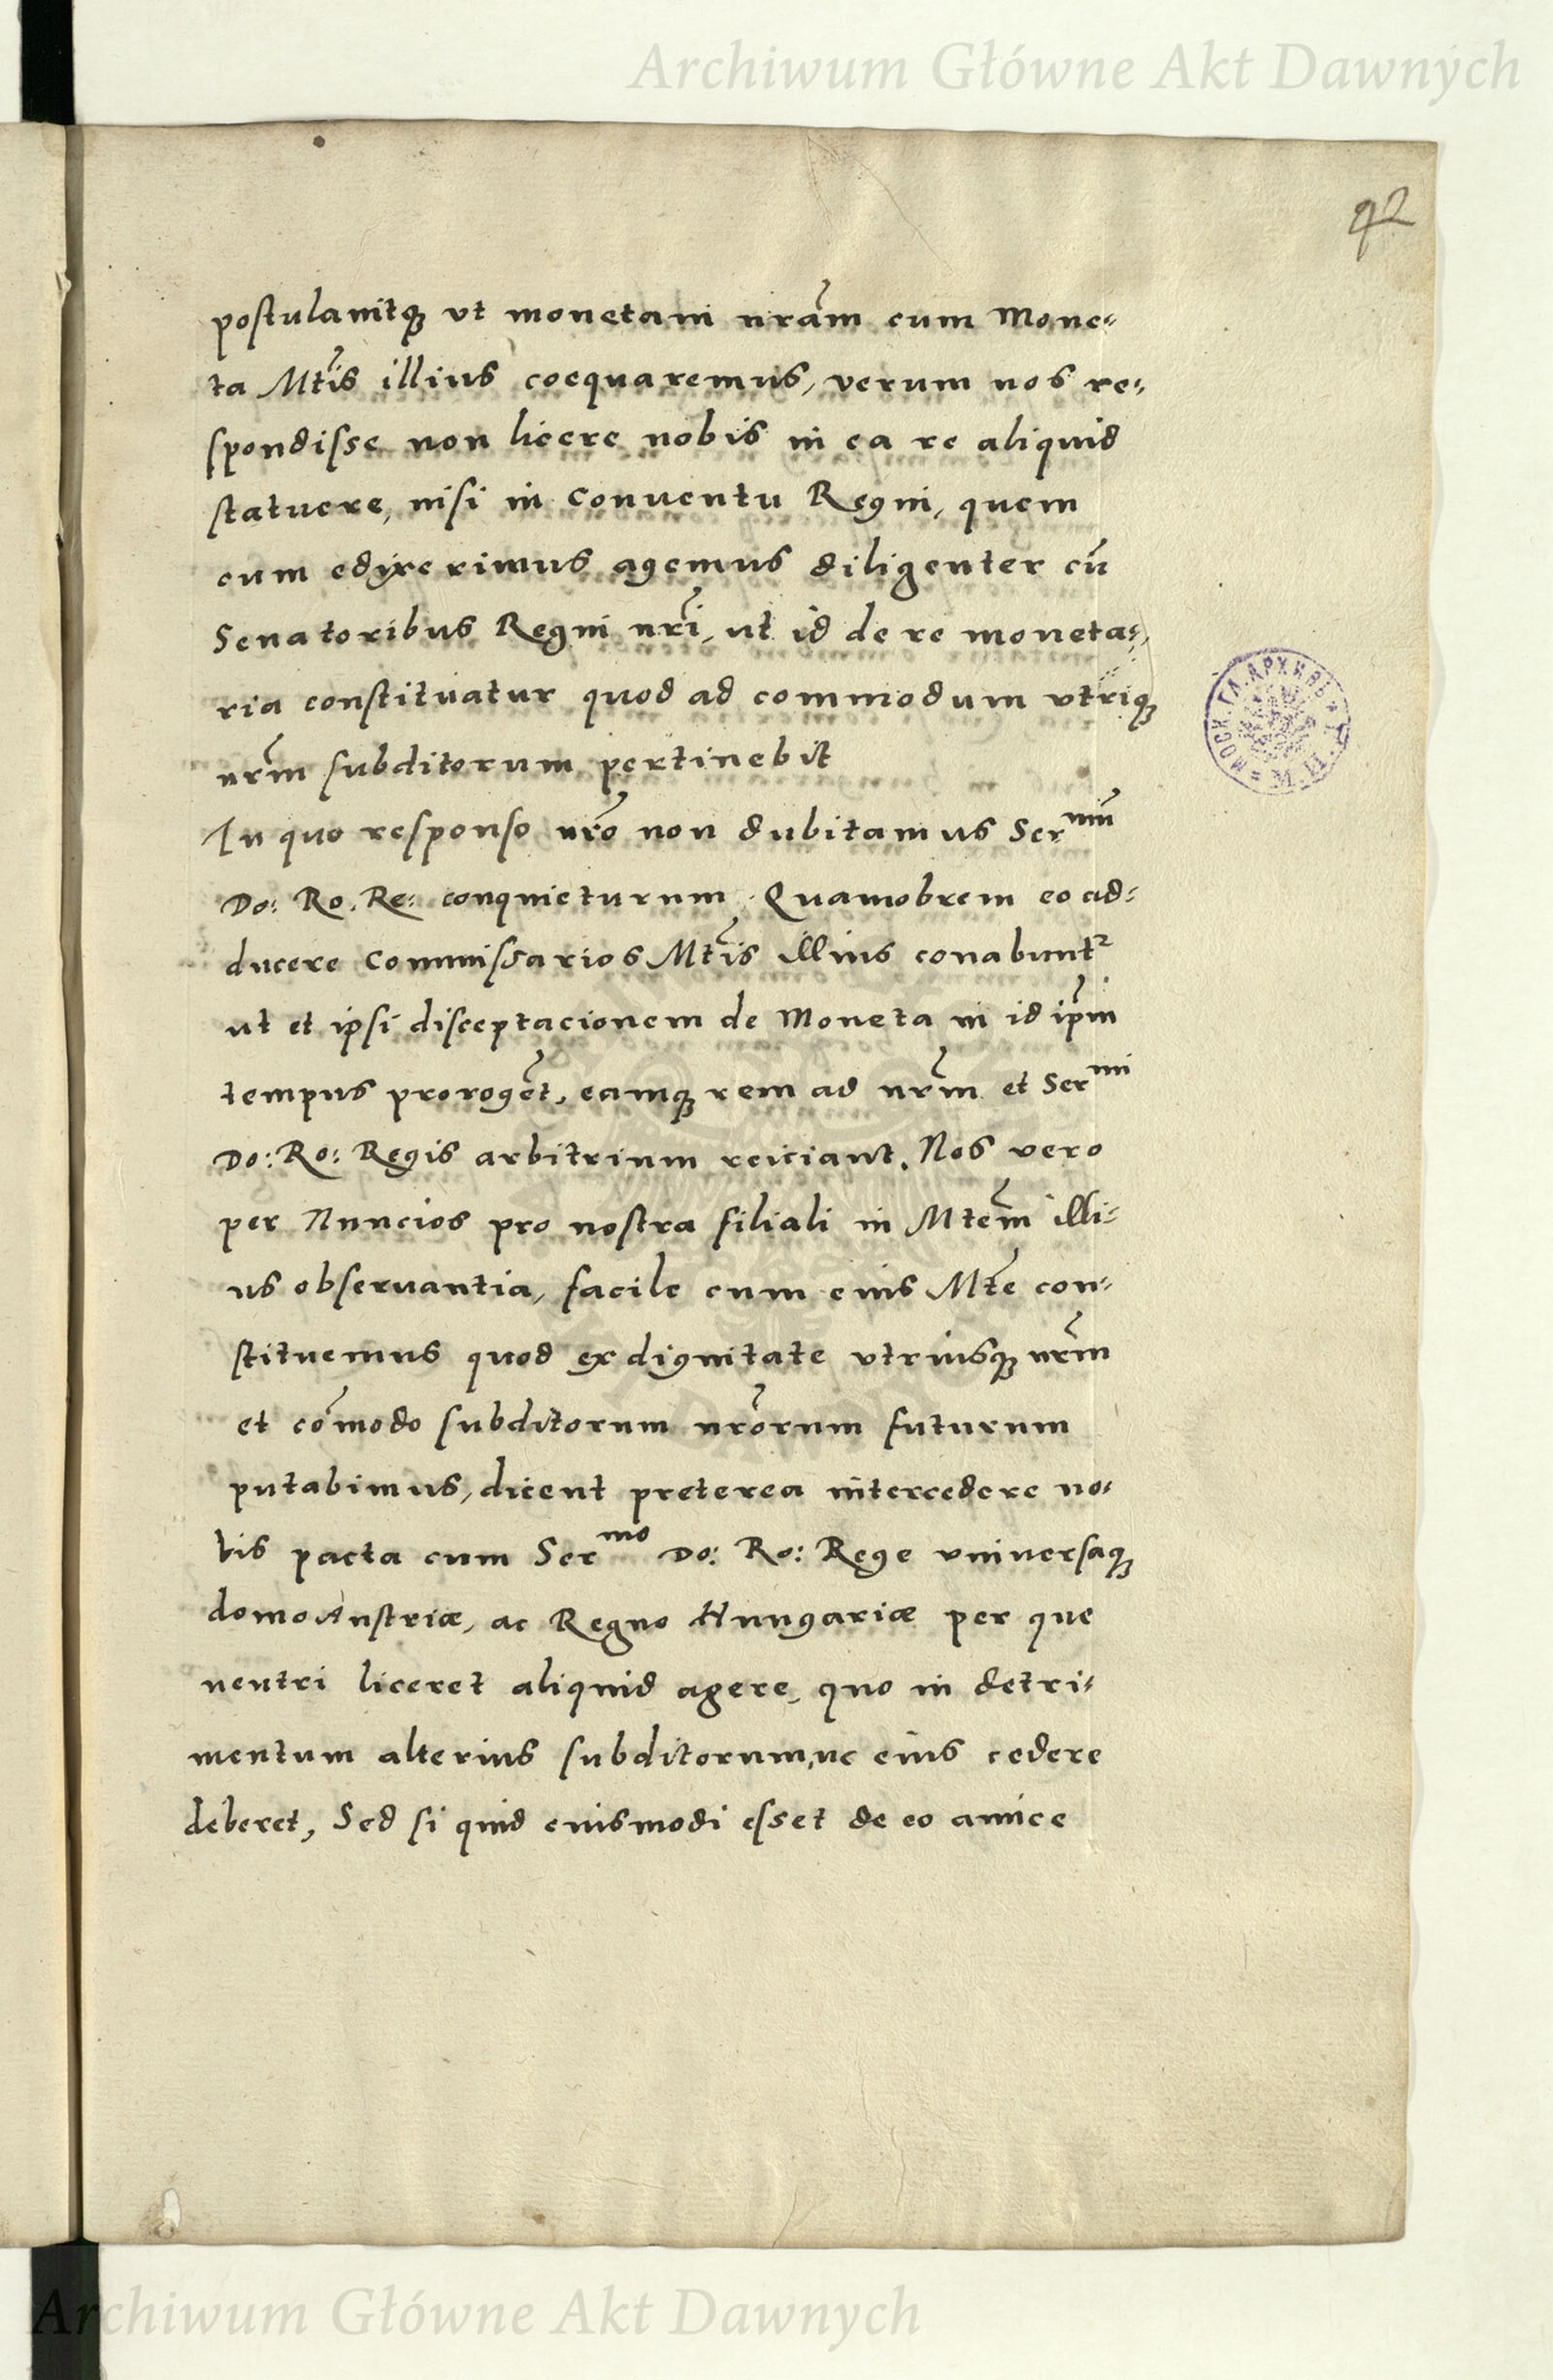 Archiwum Główne Akt Dawnych
92
postulavitq̨ ut monetam nr̃am cum Mone-
ta Mt̃is illius coequaremus, verum nos re-
spondisse non licere nobis in ea re aliquid
statuere, nisi in Conventu Regni, quem
cum edixerimus agemus diligenter cũ
Senatoribus Regni nr̃i, ut id de re moneta-
ria constituatur quod ad commodum utriq̨
nr̃m subditorum pertinebit
In quo responso nr̃o non dubitamus Ser^mum
Do: Ro. Re: conquieturum. Quamobrem eo ad-
ducere Commissarios Mt̃is illius conabunt^r
ut et ipsi disceptacionem de Moneta in id ip̃m
tempus prorogẽt, eamq̨ rem ad nr̃m et Ser^mi
Do: Ro: Regis arbitrium reiciant. Nos vero
per Nuncios pro nostra filiali in Mtẽm illi-
us observantia, facile cum eius Mt̃e con-
stituemus quod ex dignitate utriusq̨ nr̃m
et cõmodo subditorum nr̃orum futurum
putabimus, dicent preterea intercedere no-
bis pacta cum Ser^mo Do: Ro: Rege universaq̨
domo Austriæ, ac Regno Hungariæ per que
neutri liceret aliquid agere, quo in detri-
mentum alterius subditorumve eius cedere
deberet, Sed si quid eiusmodi esset de eo amice
МОСК. ГЛ. АРХИВЪ
Archiwum Główne Akt Dawnych